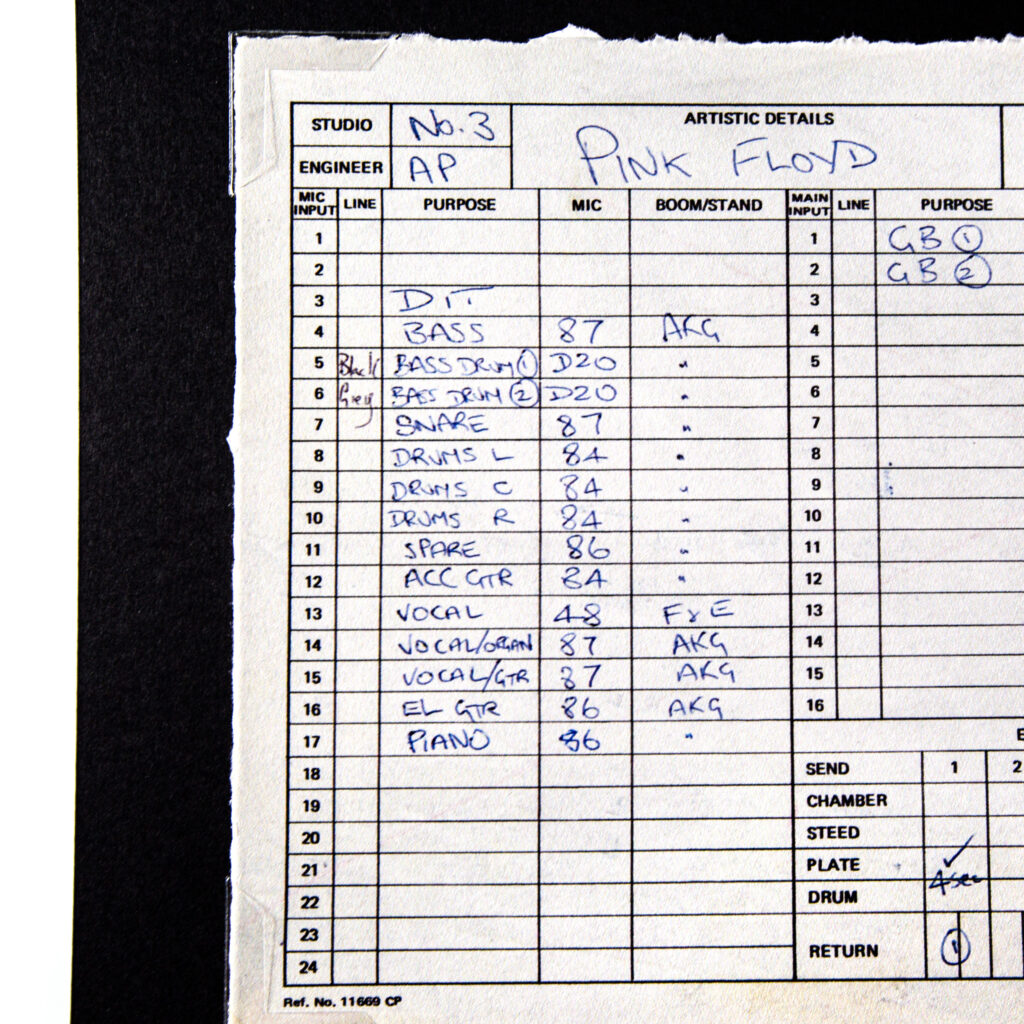 STUDIO No. 3 ARTISTIC DETAILS
ENGINEER AP PINK FLOYD
MIC INPUT LINE PURPOSE MIC BOOM/STAND MAIN INPUT LINE PURPOSE
1 1 GB ①
2 2 GB ②
3 DIT 3
4 BASS 87 AKG 4
5 Black BASS DRUM ① D20 " 5
6 Grey BASS DRUM ② D20 " 6
7 SNARE 87 " 7
8 DRUMS L 84 " 8
9 DRUMS C 84 " 9
10 DRUMS R 84 " 10
11 SPARE 86 " 11
12 ACC GTR 84 " 12
13 VOCAL 48 F & E 13
14 VOCAL/ORGAN 87 AKG 14
15 VOCAL/GTR 87 AKG 15
16 EL GTR 86 AKG 16
17 PIANO 86 "
18 SEND 1 2
19 CHAMBER
20 STEED
21 PLATE ✓
22 DRUM 4sec
23 RETURN ①
24
Ref. No. 11669 CP